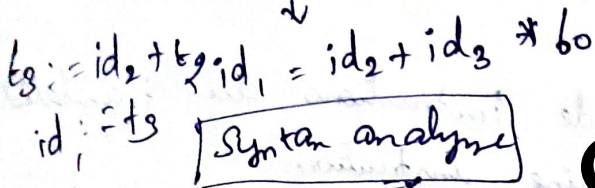 t3 := id2 + t2 id1 = id2 + id3 * 60
id1 := t3
Syntax analyse